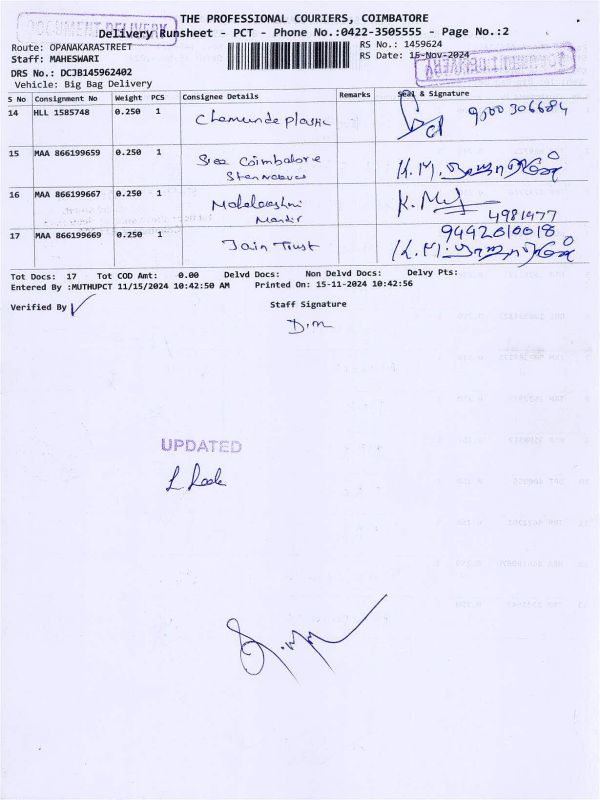 THE PROFESSIONAL COURIERS, COIMBATORE
DOCUMENT DELIVERY
Delivery Runsheet - PCT - Phone No.:0422-3505555 - Page No.:2
Route: OPANAKARASTREET
RS No.: 1459624
Staff: MAHESWARI
RS Date: 15-Nov-2024
DRS No.: DCJB145962402
Vehicle: Big Bag Delivery
S No Consignment No Weight PCS Consignee Details Remarks Seal & Signature
14 HLL 1585748 0.250 1 Chamunde plastic 9500306684
15 MAA 866199659 0.250 1 Sree Coimbatore
K.M.
16 MAA 866199667 0.250 1 Mahalakshmi
Mandir
4981477
17 MAA 866199669 0.250 1 Jain Trust
9442010018
K.M.
Tot Docs: 17 Tot COD Amt: 0.00 Delvd Docs: Non Delvd Docs: Delvy Pts:
Entered By :MUTHUPCT 11/15/2024 10:42:50 AM Printed On: 15-11-2024 10:42:56
Verified By
Staff Signature
D.m
UPDATED